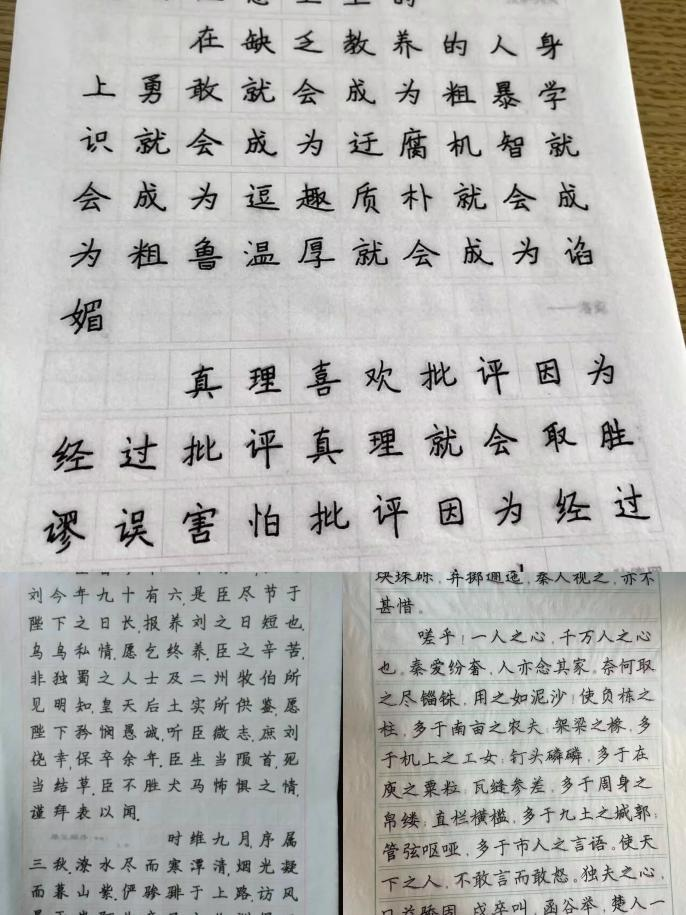 在缺乏教养的人身
上勇敢就会成为粗暴学
识就会成为迂腐机智就
会成为逗趣质朴就会成
为粗鲁温厚就会成为谄
媚
真理喜欢批评因为
经过批评真理就会取胜
谬误害怕批评因为经过
刘今年九十有六,是臣尽节于
陛下之日长,报养刘之日短也,
乌鸟私情,愿乞终养,臣之辛苦,
非独蜀之人士及二州牧伯所
见明知,皇天后土实所供鉴,愿
陛下矜悯愚诚,听臣微志,庶刘
侥幸,保卒余年,臣生当陨首,死
当结草,臣不胜犬马怖惧之情,
谨拜表以闻.
时维九月序属
三秋,潦水尽而寒潭清,烟光凝
而暮山紫,俨骖騑于上路,访风
块珠砾,弃掷逦迤,秦人视之,亦不
甚惜。
嗟乎!一人之心,千万人之心
也。秦爱纷奢,人亦念其家。奈何取
之尽锱铢,用之如泥沙!使负栋之
柱,多于南亩之农夫;架梁之椽,多
于机上之工女;钉头磷磷,多于在
庾之粟粒;瓦缝参差,多于周身之
帛缕;直栏横槛,多于九土之城郭;
管弦呕哑,多于市人之言语。使天
下之人,不敢言而敢怒。独夫之心,
日益骄固。戍卒叫,函谷举,楚人一